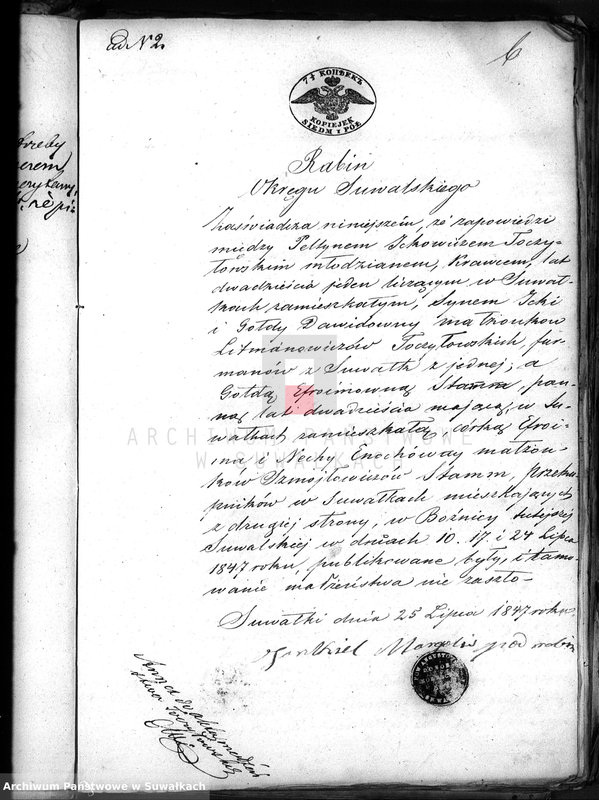 ad N 2.
6
7½ КОПѢЕКЪ
KOPIEJEK
SIEDM i PÓŁ
Rabin
Okręgu Suwalskiego
Zaświadcza niniejszém, że zapowiedzi
między Peltynem Ickowiczem Toczy-
łowskim młodzianem, Krawcem, lat
dwadzieścia jeden liczącym w Suwał-
kach zamieszkałym, Synem Icki
i Gołdy Dawidowny małżonków
Litmanowiczów Toczyłowskich, fur-
manów z Suwałk z jednej; a
Gołdą Efroimowną Stamm, pan-
ną lat dwadzieścia mającą, w Su-
wałkach zamieszkałą, córką Efroi-
ma i Nechy Enochowny małżon-
ków Szmojłowiczów Stamm, przeku-
pników w Suwałkach mieszkających
z drugiej strony, w Bożnicy tutejszej
Suwalskiej w dniach 10. 17 i 24 Lipca
1847 roku, publikowane były, i tamo-
wanie małżeństwa nie zaszło-
Suwałki dnia 25 Lipca 1847 roku.
Margolis pod rabin
ARCHIWUM PAŃSTWOWE
W SUWAŁKACH
Archiwum Państwowe w Suwałkach